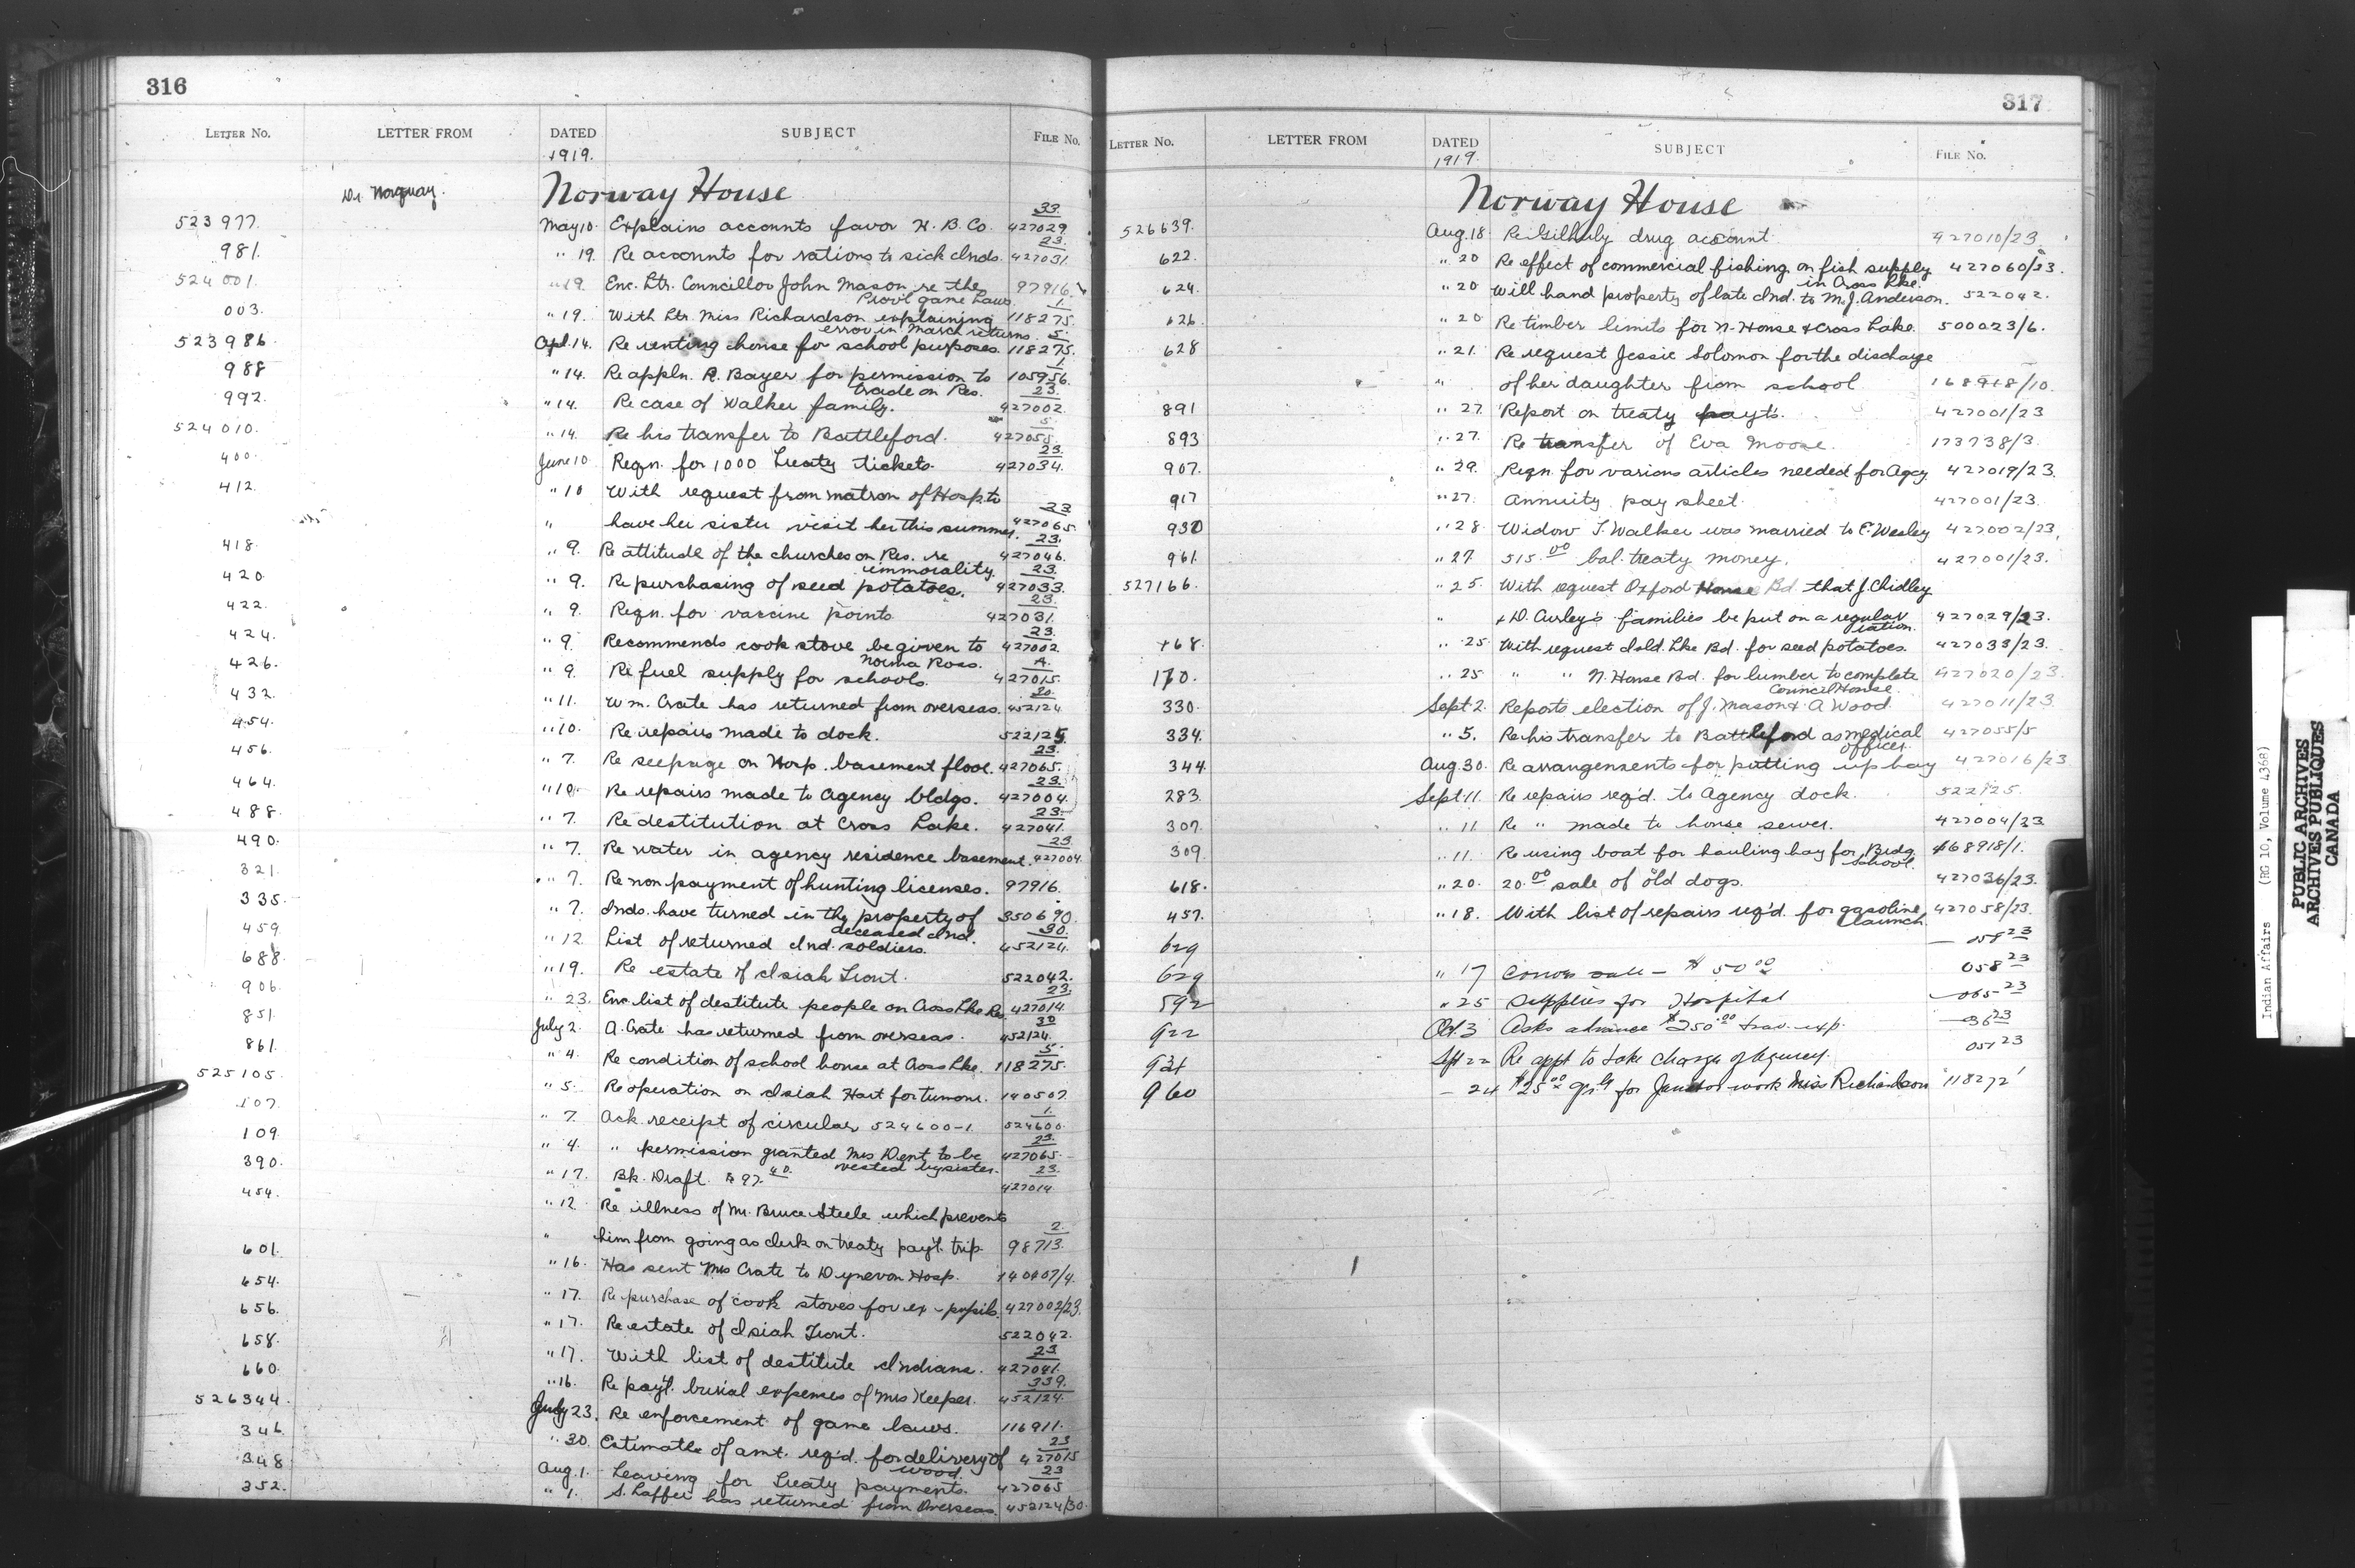 316
LETTER No. LETTER FROM DATED SUBJECT FILE No.
1919.
Dr. Norquay. Norway House
523977. May 10. Explains accounts favor H. B. Co. 33 427029
981. " 19. Re accounts for rations to sick Inds. 23. 427031.
524001. " 19. Enc. Ltr. Councillor John Mason re the 97916.
Prov'l game laws.
003. " 19. With Ltr. Miss Richardson explaining 1. 118275.
error in March returns.
523986. Apl. 14. Re renting house for school purposes. 5. 118275.
988 " 14. Re appln. R. Bayer for permission to 1 105956.
trade on Res.
992. " 14. Re case of Walker family. 23. 427002.
524010. " 14. Re his transfer to Battleford. 5. 427055.
400. June 10 Reqn. for 1000 Treaty tickets. 23. 427034.
412. " 10 With request from matron of Hosp. to
" have her sister visit her this summer. 23 427065.
418. " 9. Re attitude of the churches on Res. re 23. 427046.
immorality.
420. " 9. Re purchasing of seed potatoes. 23. 427033.
422. " 9. Reqn. for vaccine points 23. 427031.
424. " 9. Recommends cook stove be given to 23. 427002.
Norma Ross.
426. " 9. Re fuel supply for schools. A. 427015.
432. " 11. Wm. Crate has returned from overseas. 30. 452124
454. " 10. Re repairs made to dock. 522125
456. " 7. Re seepage on Hosp. basement floor. 23. 427065.
464. " 10. Re repairs made to Agency bldgs. 23. 427004.
488. " 7. Re destitution at Cross Lake. 23. 427041.
490. " 7. Re water in agency residence basement. 23. 427004.
321. " 7. Re non payment of hunting licenses. 97916.
335. " 7. Inds. have turned in the property of 350690.
deceased Ind.
459. " 12. List of returned Ind. soldiers. 30. 452124.
688. " 19. Re estate of Isiah Trout. 522042.
906. " 23. Enc. list of destitute people on Cross Lke Res. 23. 427014.
851. July 2. A. Crate has returned from overseas. 30 452124.
861. " 4. Re condition of school house at Cross Lke. 5. 118275.
525105. " 5. Re operation on Isiah Hart for tumour. 140507.
107. " 7. Ack. receipt of circular 524600-1. 1. 524600.
109. " 4. " permission granted Mrs Dent to be 23. 427065.
vested by sister.
390. " 17. Bk. Draft. $97.40. 23. 427014
454. " 12. Re illness of Mr. Bruce Steele which prevents
" him from going as clerk on treaty pay't. trip. 2. 98713.
601. " 16. Has sent Mrs Crate to Dynevor Hosp. 140407/4.
654. " 17. Re purchase of cook stoves for ex-pupils. 427002/23.
656. " 17. Re estate of Isiah Trout. 522042.
658. " 17. With list of destitute Indians. 23 427041.
660. " 16. Re pay't. burial expenses of Mrs Keeper. 339. 452124.
526344. July 23. Re enforcement of game laws. 116911.
346. " 30. Estimate of amt. req'd. for delivery of 23 427015
wood.
348 Aug. 1. Leaving for Treaty payments. 23 427065
352. " 1. S. Laffer has returned from Overseas. 452124/30.
317
LETTER No. LETTER FROM DATED SUBJECT FILE No.
1919.
Norway House
526639. Aug. 18 Re Gilhuly drug account. 427010/23.
622. " 20 Re effect of commercial fishing on fish supply 427060/23.
in Cross Lke.
624. " 20 Will hand property of late Ind. to M. J. Anderson. 522042.
626. " 20 Re timber limits for N. House & Cross Lake. 500023/6.
628 " 21. Re request Jessie Solomon for the discharge
" of her daughter from school. 168918/10.
891 " 27. Report on treaty payts. 427001/23
893 " 27. Re transfer of Eva Moose. 173738/3.
907. " 29. Reqn. for various articles needed for Agcy. 427019/23.
917 " 27. Annuity pay sheet. 427001/23.
930 " 28. Widow J. Walker was married to E. Wesley 427002/23.
961. " 27. 515.00 bal. treaty money. 427001/23.
527166. " 25. With request Oxford House Bd. that J. Chidley
" & D. Curley's families be put on a regular 427029/23.
ration.
168. " 25 With request Isld. Lke Bd. for seed potatoes. 427033/23.
170. " 25 " " N. House Bd. for lumber to complete 427020/23.
Council House.
330. Sept. 2. Reports election of J. Mason & A Wood. 427011/23
334. " 5. Re his transfer to Battleford as medical 427055/5
officer.
344. Aug. 30. Re arrangements for putting up hay 427016/23
283. Sept 11 Re repairs req'd. to Agency dock. 522125.
307. " 11. Re " made to house sewer. 427004/23
309. " 11. Re using boat for hauling hay for Brdg. 168918/1.
School.
618. " 20. 20.00 sale of old dogs. 427036/23.
457. " 18. With list of repairs req'd. for gasoline 427058/23.
launch.
629 — 058 23
629 " 17 sale — $50.00 058 23
592 " 25 Supplies for Hospital —065 23
922 Oct. 3 Asks advance $250.00 trav. exp. —36 23
934 Sept 22 Re appt to take charge of Agency. 051 23
960 — 24 $25.00 for Janitor work Miss Richardson 118272
Indian Affairs (RG 10, Volume 4368)
PUBLIC ARCHIVES
ARCHIVES PUBLIQUES
CANADA